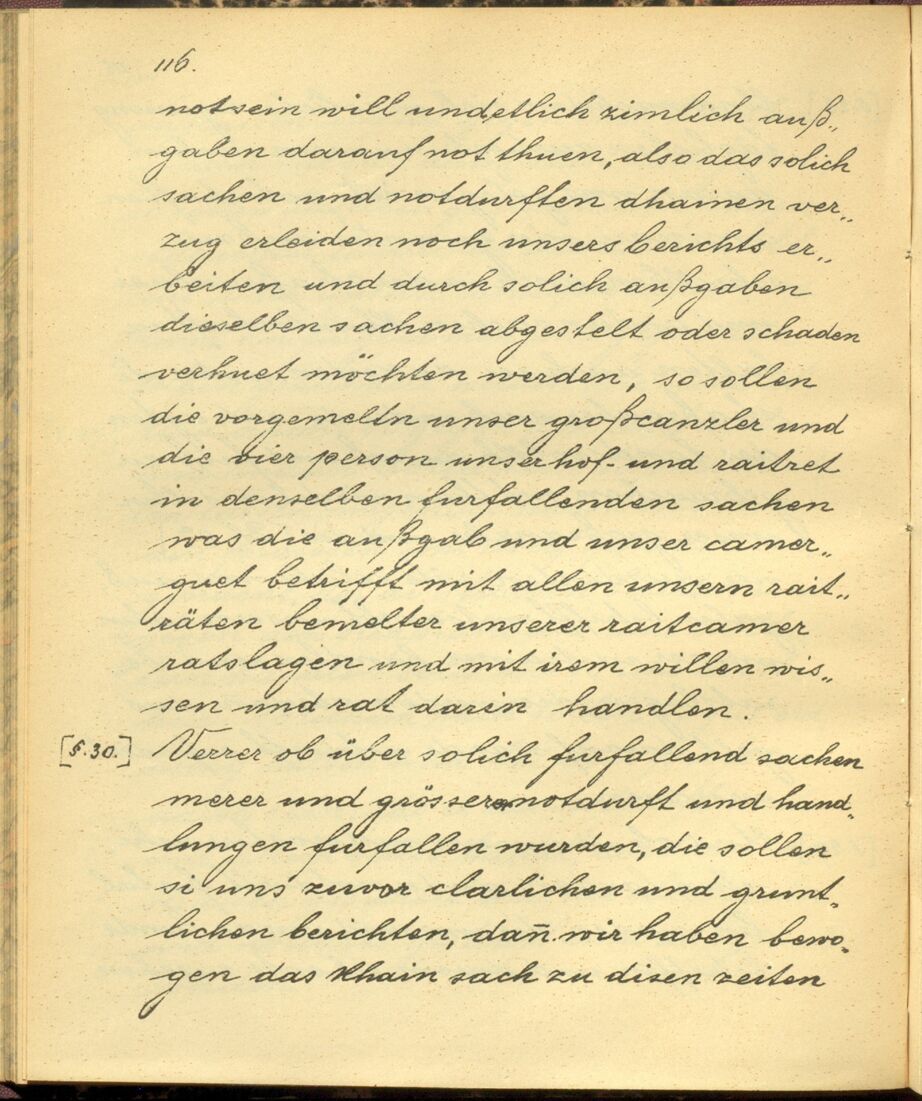 116.
not sein will und etlich zimlich auß„
gaben darauf not thuen, also das solich
sachen und notdurften dhainen ver„
zug erleiden noch unsers berichts er„
beiten und durch solich außgaben
dieselben sachen abgestelt oder schaden
verhuet möchten werden, so sollen
die vorgemeltn unser großcanzler und
die vier person unser hof- und raitret
in denselben furfallenden sachen
was die außgab und unser camer„
guet betrifft mit allen unsern rait„
räten bemelter unserer raitcamer
ratslagen und mit irem willen wis„
sen und rat darin handlen.
[§.30.] Verrer ob über solich furfallend sachen
merer und grösser notdurft und hand„
lungen furfallen wurden, die sollen
si uns zuvor clarlichen und grunt„
lichen berichten, dañ wir haben bewo„
gen das khain sach zu disen zeiten